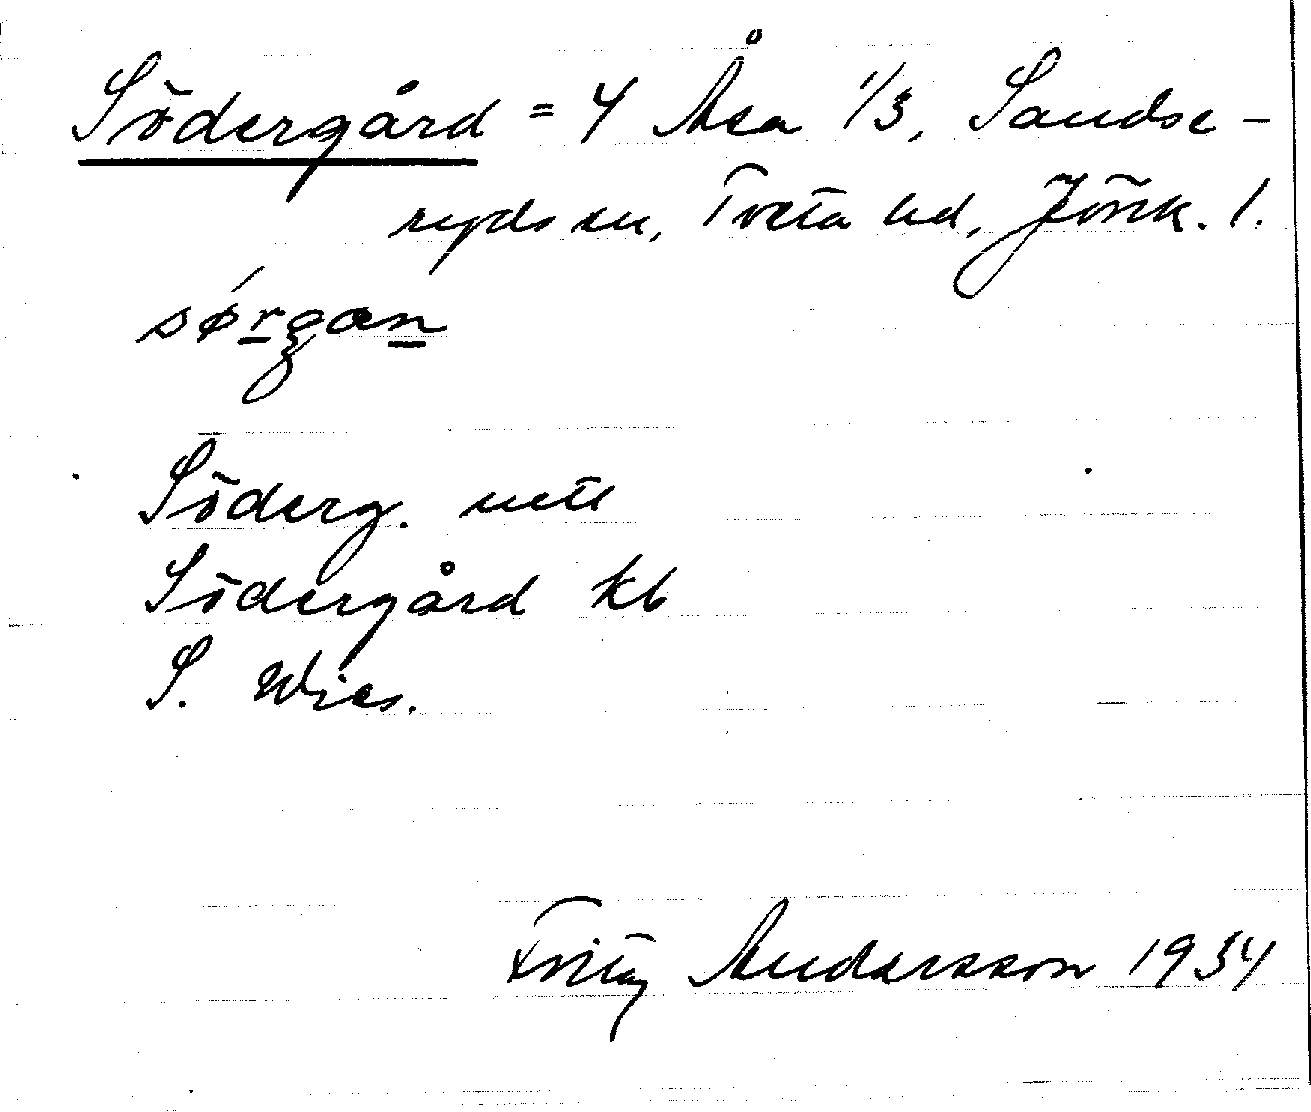 Södergård = 4 Åsa 1/3, Sandse-
ryds sn, Tveta hd, Jönk. l.
sørgan
Söderg. uttl
Södergård kb
S. Wies.
Fritz Andersson 1934